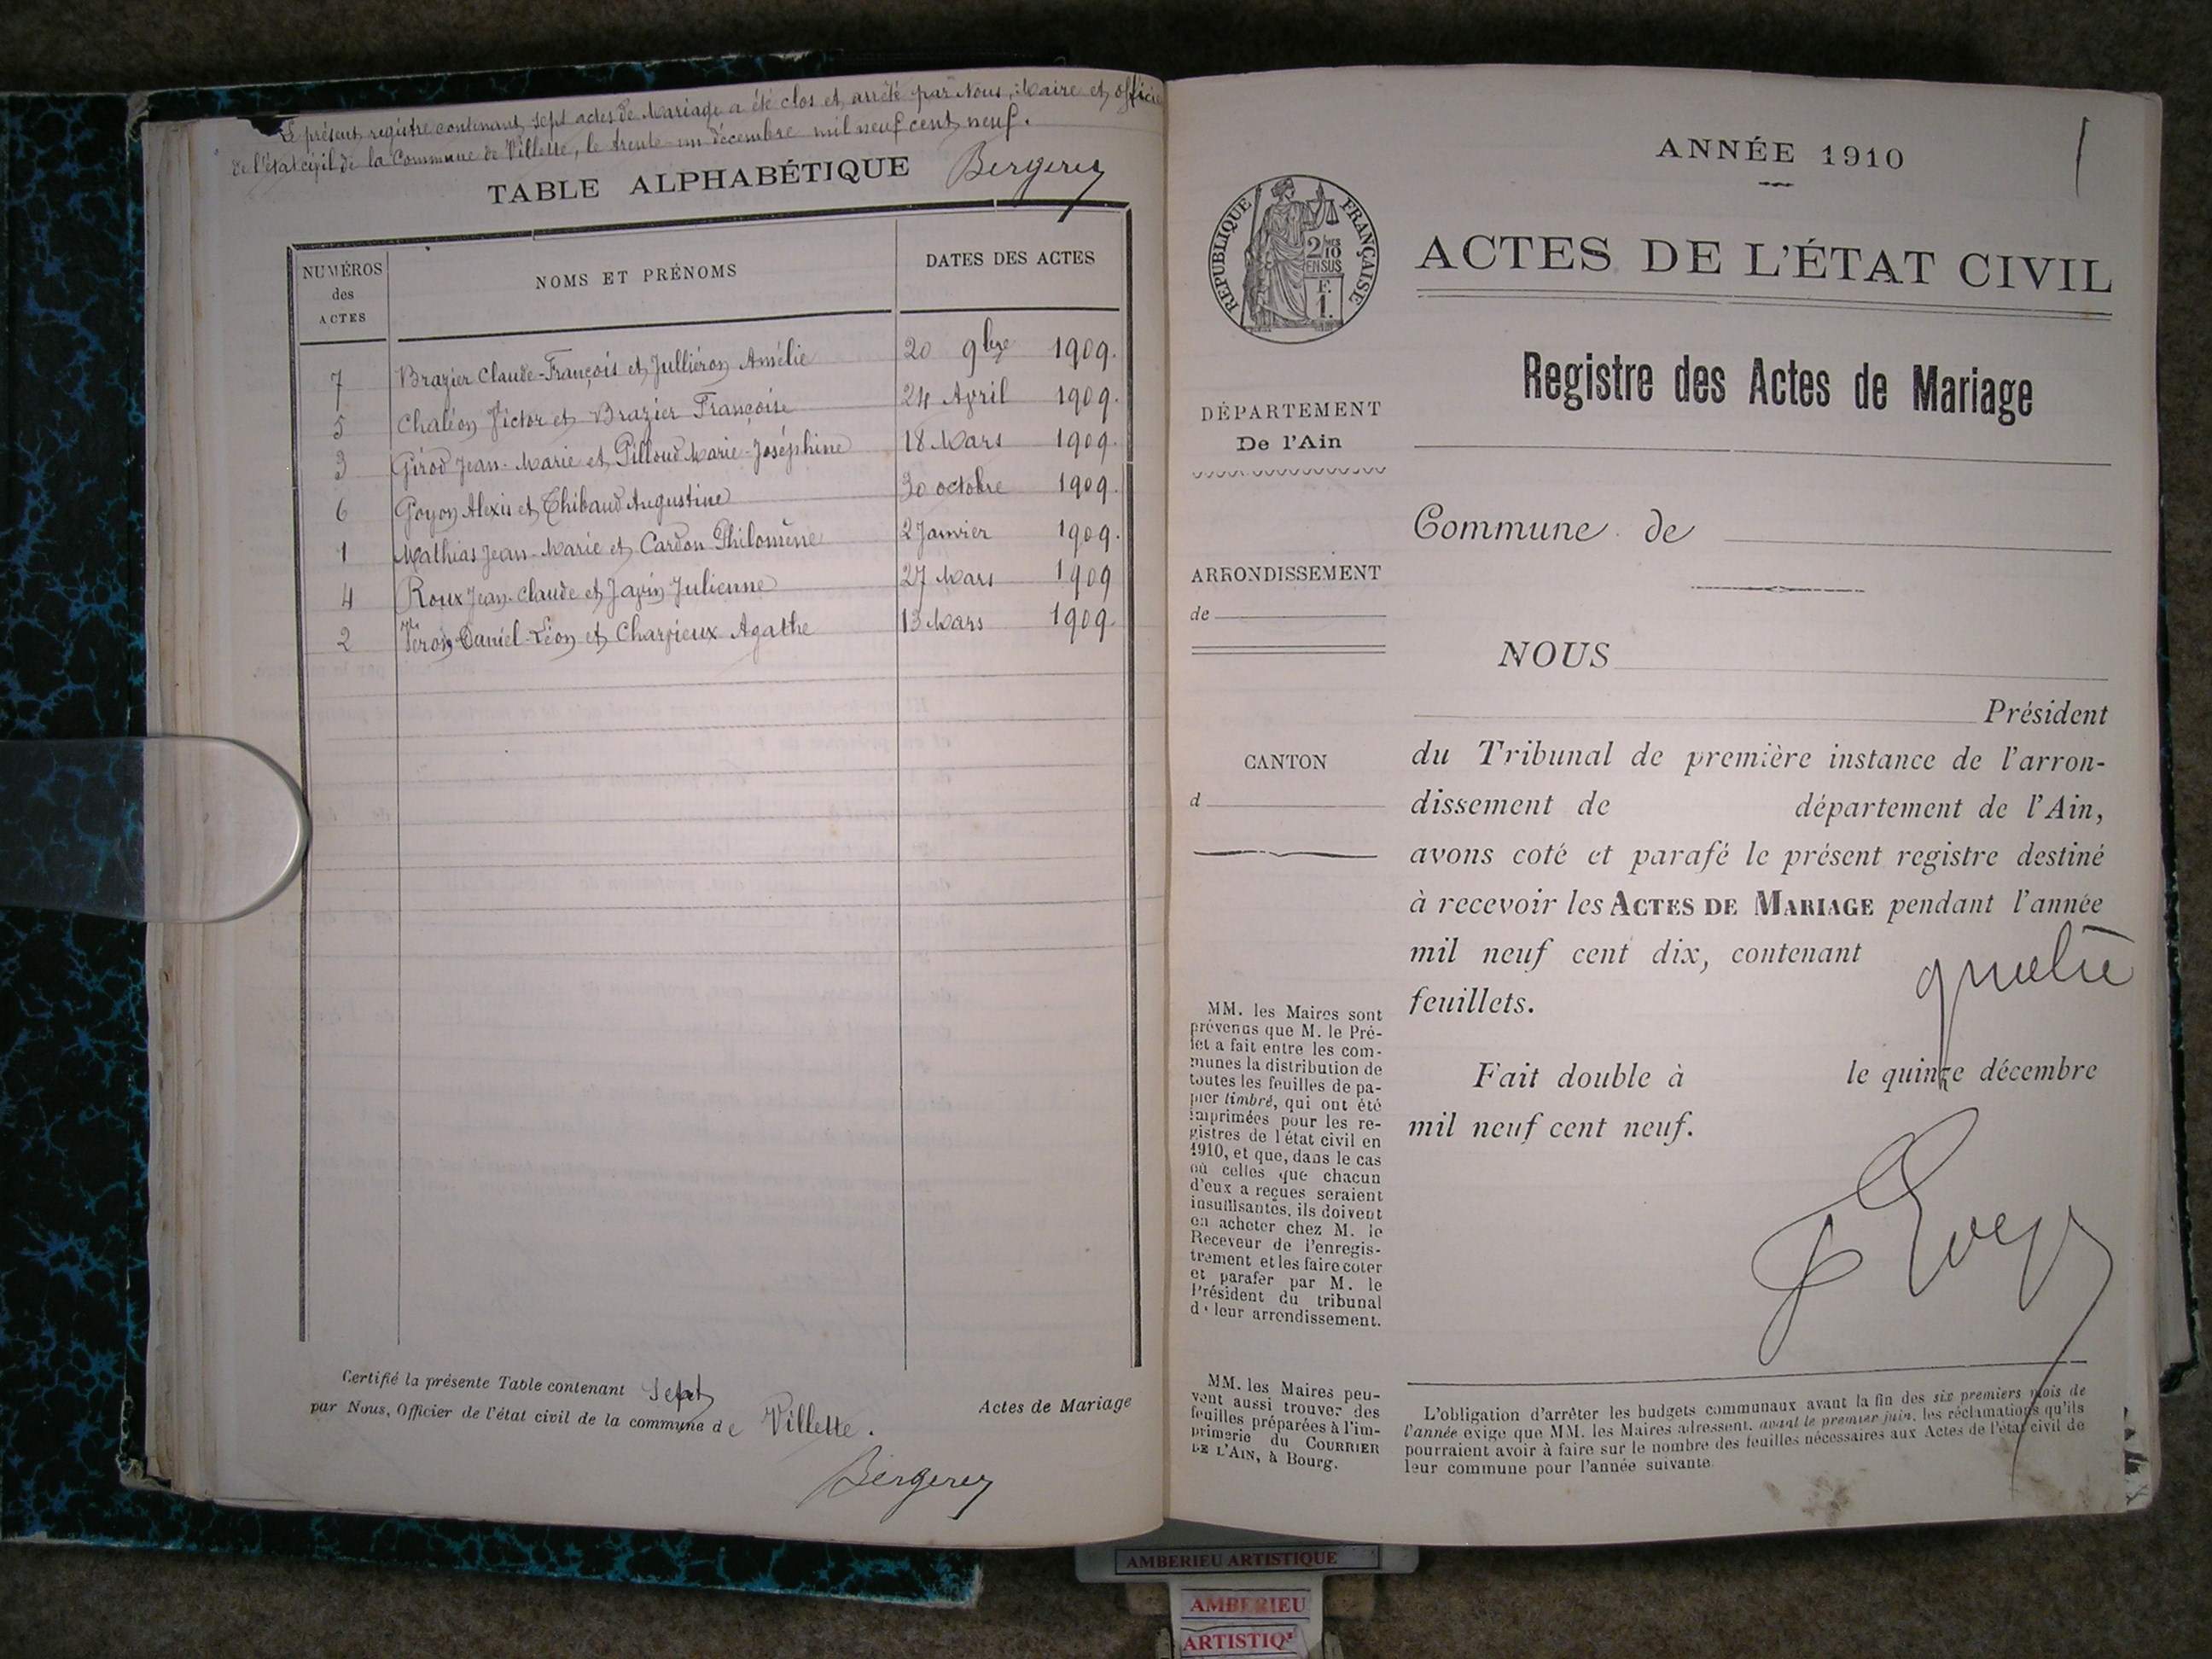 Le présent registre contenant sept actes de Mariage a été clos et arrêté par Nous, Maire et officier
de l'état civil de la Commune de Villette, le trente-un décembre mil neuf cent neuf.
TABLE ALPHABÉTIQUE
Bergerey
NUMÉROS des ACTES
NOMS ET PRÉNOMS
DATES DES ACTES
7 Brazier Claude-François et Julliéron Amélie 20 9bre 1909.
5 Chaléon Victor et Brazier Françoise 24 Avril 1909.
3 Girod Jean-Marie et Pilloud Marie-Joséphine 18 Mars 1909.
6 Goyon Alexis et Thibaud Augustine 30 octobre 1909.
1 Mathias Jean-Marie et Cardon Philomène 2 Janvier 1909.
4 Roux Jean-Claude et Japin Julienne 27 Mars 1909
2 Véron Daniel-Léon et Charpieux Agathe 13 Mars 1909.
Certifié la présente Table contenant sept Actes de Mariage
par Nous, Officier de l'état civil de la commune de Villette.
Bergerey
ANNÉE 1910
1
RÉPUBLIQUE FRANÇAISE
2/10
EN SUS
F.
1.
ACTES DE L'ÉTAT CIVIL
Registre des Actes de Mariage
DÉPARTEMENT
De l'Ain
ARRONDISSEMENT
de
CANTON
d
MM. les Maires sont
prévenus que M. le Pré-
fet a fait entre les com-
munes la distribution de
toutes les feuilles de pa-
pier timbré, qui ont été
imprimées pour les re-
gistres de l'état civil en
1910, et que, dans le cas
où celles que chacun
d'eux a reçues seraient
insuffisantes, ils doivent
en acheter chez M. le
Receveur de l'enregis-
trement et les faire coter
et parafer par M. le
Président du tribunal
de leur arrondissement.
MM. les Maires peu-
vent aussi trouver des
feuilles préparées à l'im-
primerie du COURRIER
DE L'AIN, à Bourg.
Commune de
NOUS
Président
du Tribunal de première instance de l'arron-
dissement de département de l'Ain,
avons coté et parafé le présent registre destiné
à recevoir les ACTES DE MARIAGE pendant l'année
mil neuf cent dix, contenant quatre
feuillets.
Fait double à le quinze décembre
mil neuf cent neuf.
L'obligation d'arrêter les budgets communaux avant la fin des six premiers mois de
l'année exige que MM. les Maires adressent, avant le premier juin, les réclamations qu'ils
pourraient avoir à faire sur le nombre des feuilles nécessaires aux Actes de l'état civil de
leur commune pour l'année suivante.
AMBERIEU ARTISTIQUE
AMBERIEU
ARTISTIQ